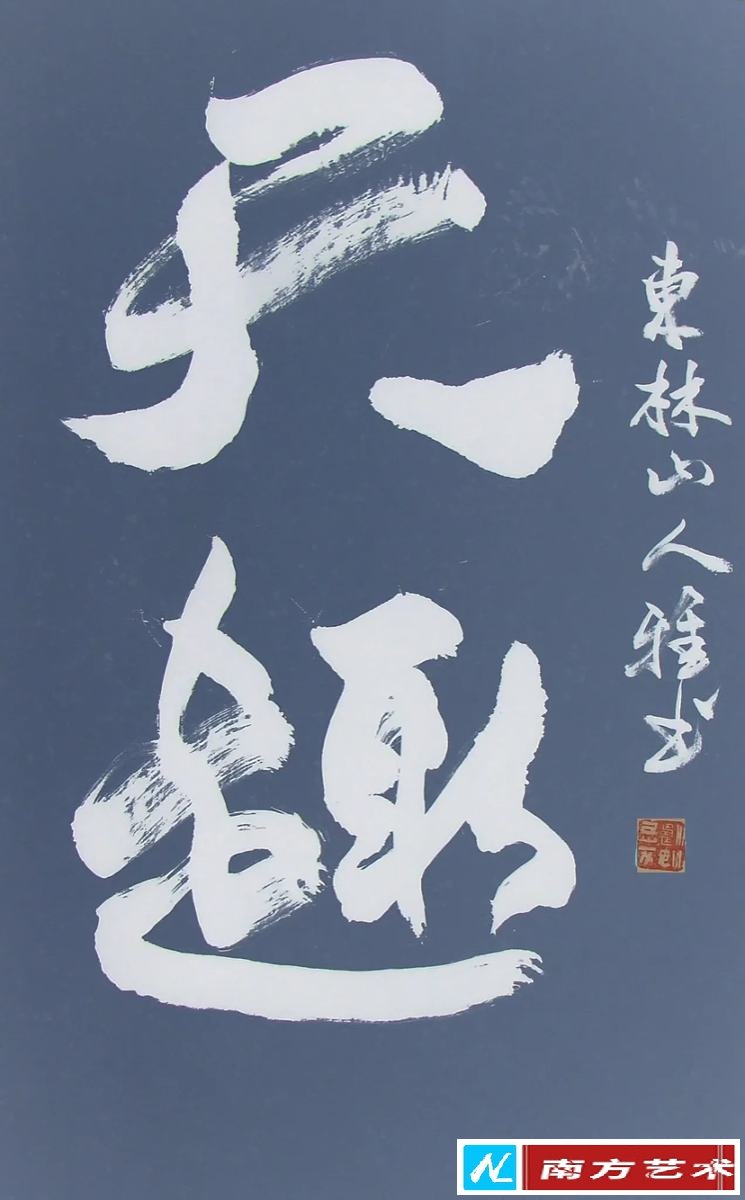 天趣
東林山人雅书
南方艺术